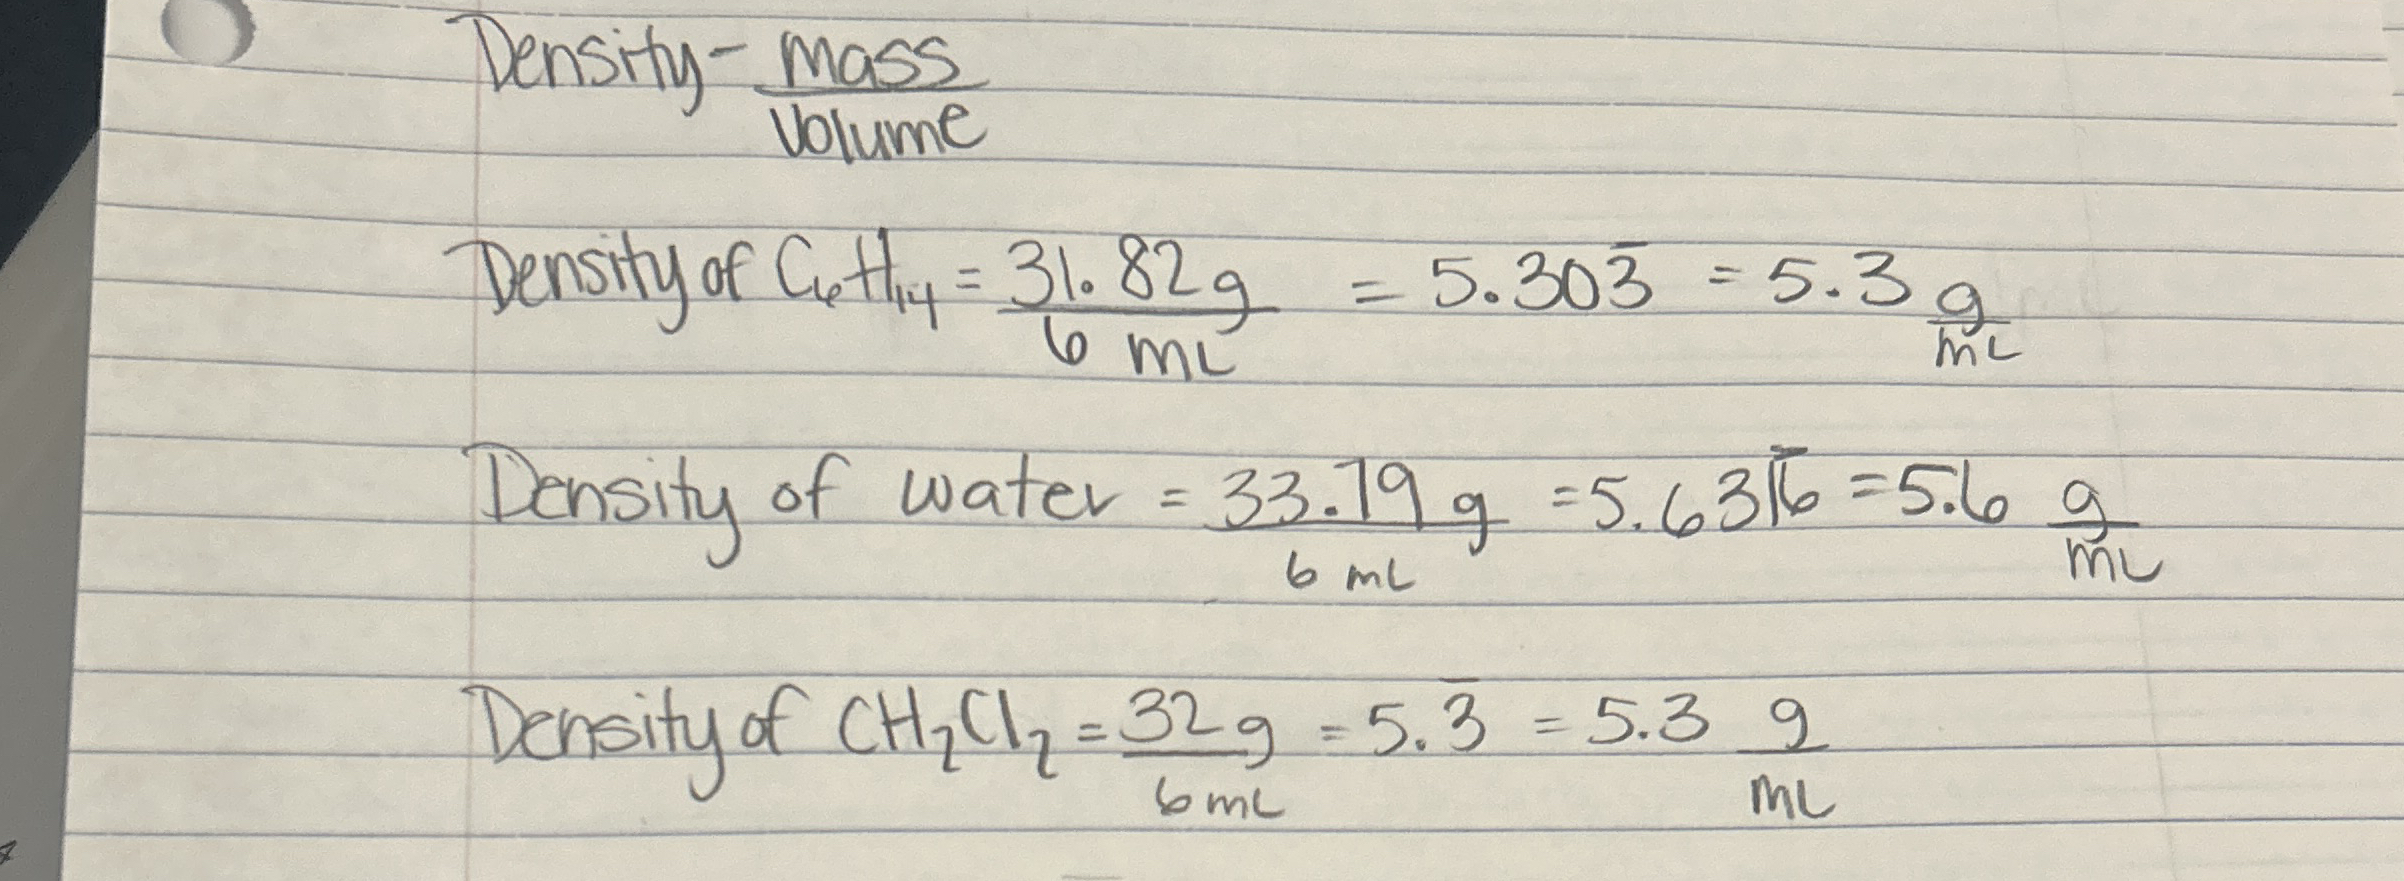 Density - mass/volume
Density of C₆H₁₄ = 31.82g/6 mL = 5.303̅ = 5.3 g/mL
Density of water = 33.79 g/6 mL = 5.6316̅ = 5.6 g/mL
Density of CH₂Cl₂ = 32g/6mL = 5.3̅ = 5.3 g/mL